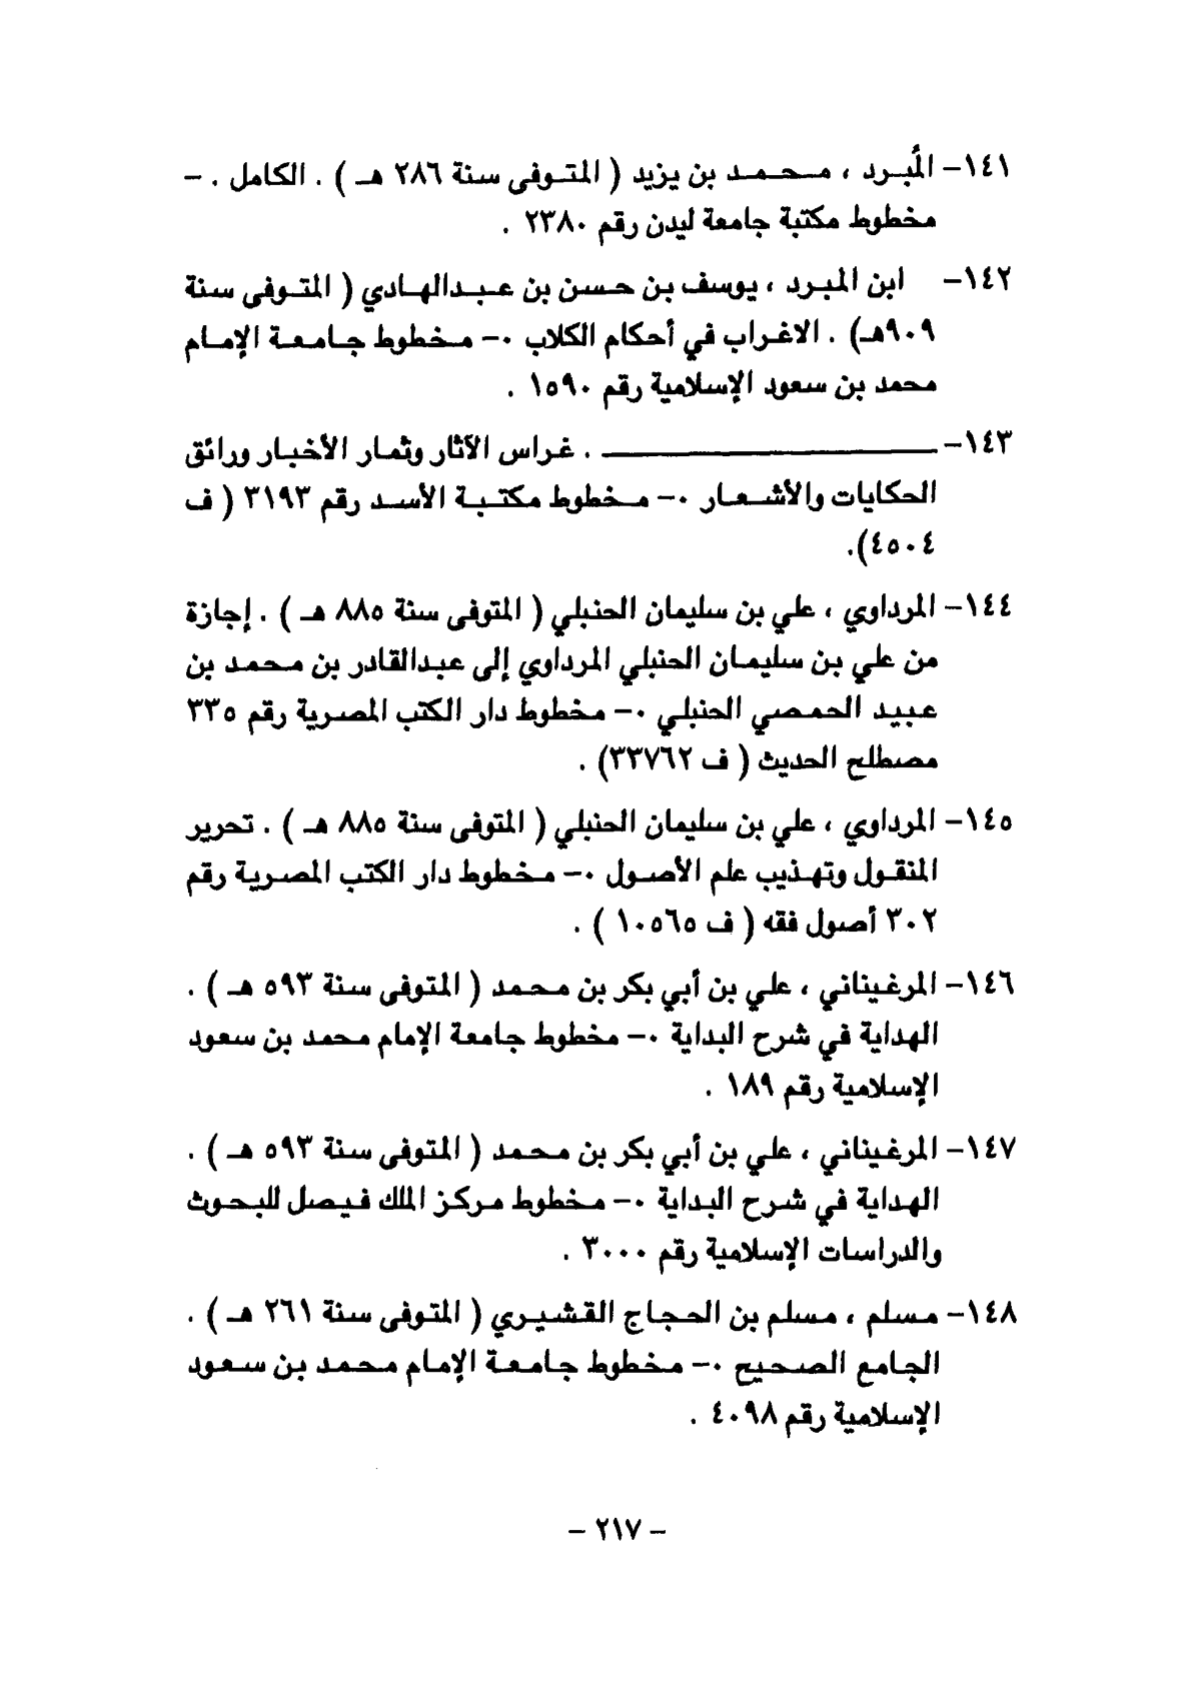 ١٤١- المُبرد ، محمد بن يزيد ( المتوفى سنة ٢٨٦ هـ ) . الكامل . -
مخطوط مكتبة جامعة ليدن رقم ٢٣٨٠ .
١٤٢- ابن المبرد ، يوسف بن حسن بن عبدالهادي ( المتوفى سنة
٩٠٩هـ) . الاغراب في أحكام الكلاب ٠- مخطوط جامعة الإمام
محمد بن سعود الإسلامية رقم ١٥٩٠ .
١٤٣- ــــــــــــــــــــ . غراس الآثار وثمار الأخبار ورائق
الحكايات والأشعار ٠- مخطوط مكتبة الأسد رقم ٣١٩٣ ( ف
٤٥٠٤).
١٤٤- المرداوي ، علي بن سليمان الحنبلي ( المتوفى سنة ٨٨٥ هـ ) . إجازة
من علي بن سليمان الحنبلي المرداوي إلى عبدالقادر بن محمد بن
عبيد الحمصي الحنبلي ٠- مخطوط دار الكتب المصرية رقم ٣٣٥
مصطلح الحديث ( ف ٣٣٧٦٢) .
١٤٥- المرداوي ، علي بن سليمان الحنبلي ( المتوفى سنة ٨٨٥ هـ ) . تحرير
المنقول وتهذيب علم الأصول ٠- مخطوط دار الكتب المصرية رقم
٣٠٢ أصول فقه ( ف ١٠٥٦٥ ) .
١٤٦- المرغيناني ، علي بن أبي بكر بن محمد ( المتوفى سنة ٥٩٣ هـ ) .
الهداية في شرح البداية ٠- مخطوط جامعة الإمام محمد بن سعود
الإسلامية رقم ١٨٩ .
١٤٧- المرغيناني ، علي بن أبي بكر بن محمد ( المتوفى سنة ٥٩٣ هـ ) .
الهداية في شرح البداية ٠- مخطوط مركز الملك فيصل للبحوث
والدراسات الإسلامية رقم ٣٠٠٠ .
١٤٨- مسلم ، مسلم بن الحجاج القشيري ( المتوفى سنة ٢٦١ هـ ) .
الجامع الصحيح ٠- مخطوط جامعة الإمام محمد بن سعود
الإسلامية رقم ٤٠٩٨ .
- ٢١٧ -